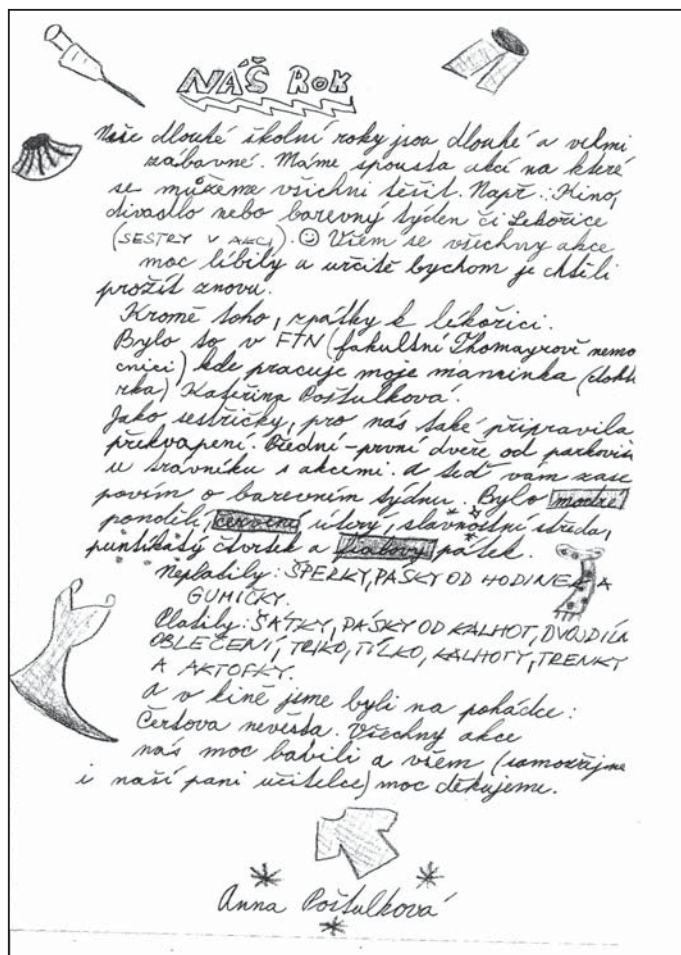 NÁŠ ROK
Naše dlouhé školní roky jsou dlouhé a velmi
zábavné. Máme spousta akcí na které
se můžeme všichni těšit. Např.: Kino,
divadlo nebo barevný týden či Lékořice
(SESTRY V AKCI). ☺ Všem se všechny akce
moc líbily a určitě bychom je chtěli
prožít znovu.
Kromě toho, zpátky k lékořici.
Bylo to v FTN (fakultní Thomayrově nemo
cnici) kde pracuje moje maminka (dokto
rka) Kateřina Poštulková.
Jako sestřičky, pro nás také připravila
překvapení. Přední-první dveře od parkoviš
u trávníku s akcemi. A teď vám zase
povím o barevném týdnu. Bylo modré
pondělí, červené úterý, slavnostní středa,
puntíkatý čtvrtek a fialový pátek.
Neplatily: ŠPERKY, PÁSKY OD HODINEK A
GUMIČKY.
Platily: ŠÁTKY, PÁSKY OD KALHOT, DVOJDÍLN
OBLEČENÍ, TRIKO, TÍLKO, KALHOTY, TRENKY
A AKTOFKY.
A v kině jsme byli na pohádce:
Čertova nevěsta. Všechny akce
nás moc bavili a všem (samozřejmě
i naší pani učitelce) moc děkujeme.
Anna Poštulková